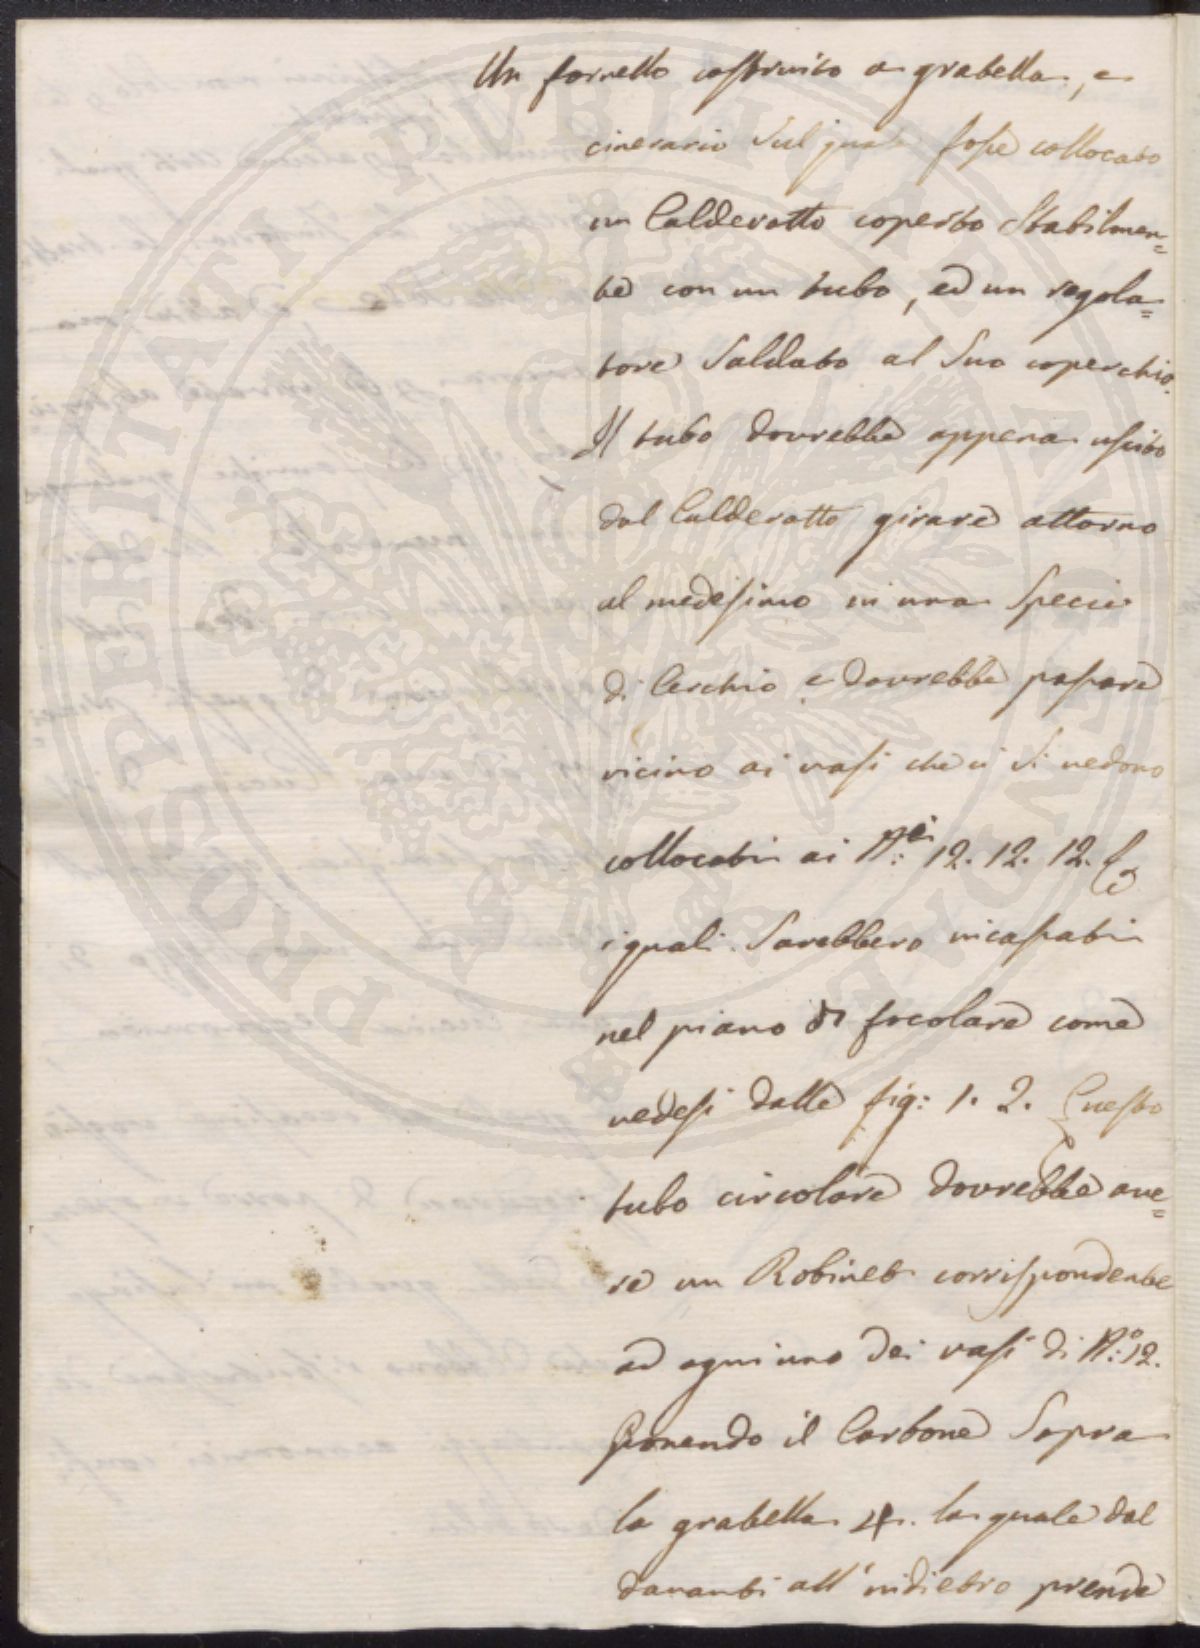 Un fornello costruito a gratella, e
cinerario sul quale fosse collocato
un Calderotto coperto stabilmen=
te con un tubo, ed un regola=
tore saldato al suo coperchio.
Il tubo dovrebbe appena uscito
dal Calderotto girare attorno
al medesimo in una specie
di Cerchio e dovrebbe passare
vicino ai vasi che ci si vedono
collocati ai N.ri 12. 12. 12. Ed
i quali sarebbero incassati
nel piano di focolare come
vedesi dalle fig: 1. 2. Questo
tubo circolare dovrebbe ave=
re un Robinet corrispondente
ad ogni uno dei vasi di N.o 12.
Ponendo il Carbone sopra
la gratella 4. la quale dal
davanti all'indietro prende
PROSPERITATI PVBLICAE AVGENDAE